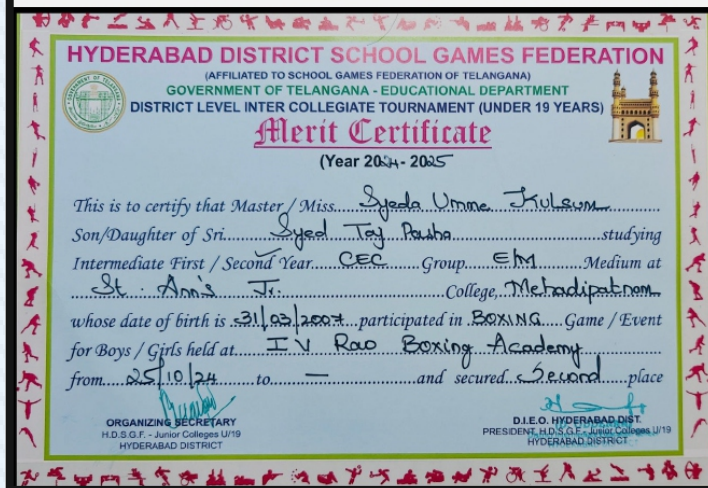 HYDERABAD DISTRICT SCHOOL GAMES FEDERATION
(AFFILIATED TO SCHOOL GAMES FEDERATION OF TELANGANA)
GOVERNMENT OF TELANGANA - EDUCATIONAL DEPARTMENT
DISTRICT LEVEL INTER COLLEGIATE TOURNAMENT (UNDER 19 YEARS)
Merit Certificate
(Year 2024 - 2025
This is to certify that Master / Miss.... Syeda Umme Kulsum
Son/Daughter of Sri.... Syed Taj Pasha ....studying
Intermediate First / Second Year.... CEC ....Group.... E/M ....Medium at
St. Ann's Jr. ....College, Mehadipatnam
whose date of birth is 31/03/2007 participated in BOXING Game / Event
for Boys / Girls held at.... I V Rao Boxing Academy
from.... 25/10/24 ....to.... — ....and secured.. Second ....place
ORGANIZING SECRETARY
H.D.S.G.F. - Junior Colleges U/19
HYDERABAD DISTRICT
D.I.E.O. HYDERABAD DIST.
PRESIDENT, H.D.S.G.F. - Junior Colleges U/19
HYDERABAD DISTRICT